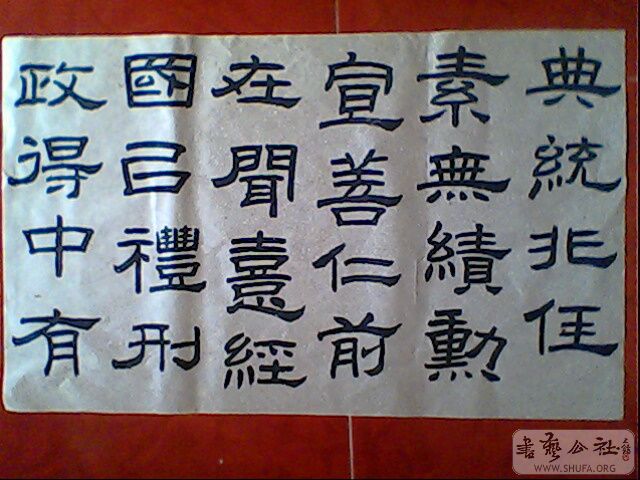 典統非任
素無績勳
宣善仁前
在聞憙經
國㠯禮刑
政得中有
書藝公社
WWW.SHUFA.ORG